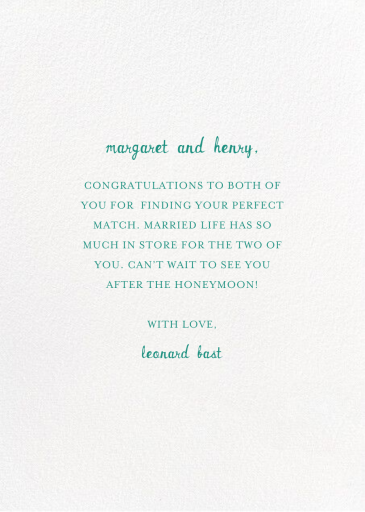 margaret and henry,
CONGRATULATIONS TO BOTH OF
YOU FOR FINDING YOUR PERFECT
MATCH. MARRIED LIFE HAS SO
MUCH IN STORE FOR THE TWO OF
YOU. CAN'T WAIT TO SEE YOU
AFTER THE HONEYMOON!
WITH LOVE,
leonard bast